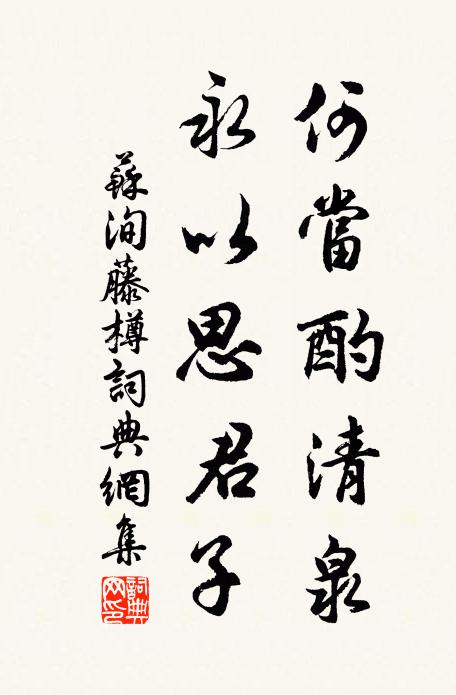 何當酌清泉
永以思君子
蘇洵藤樽詞典網集
詞典
网印